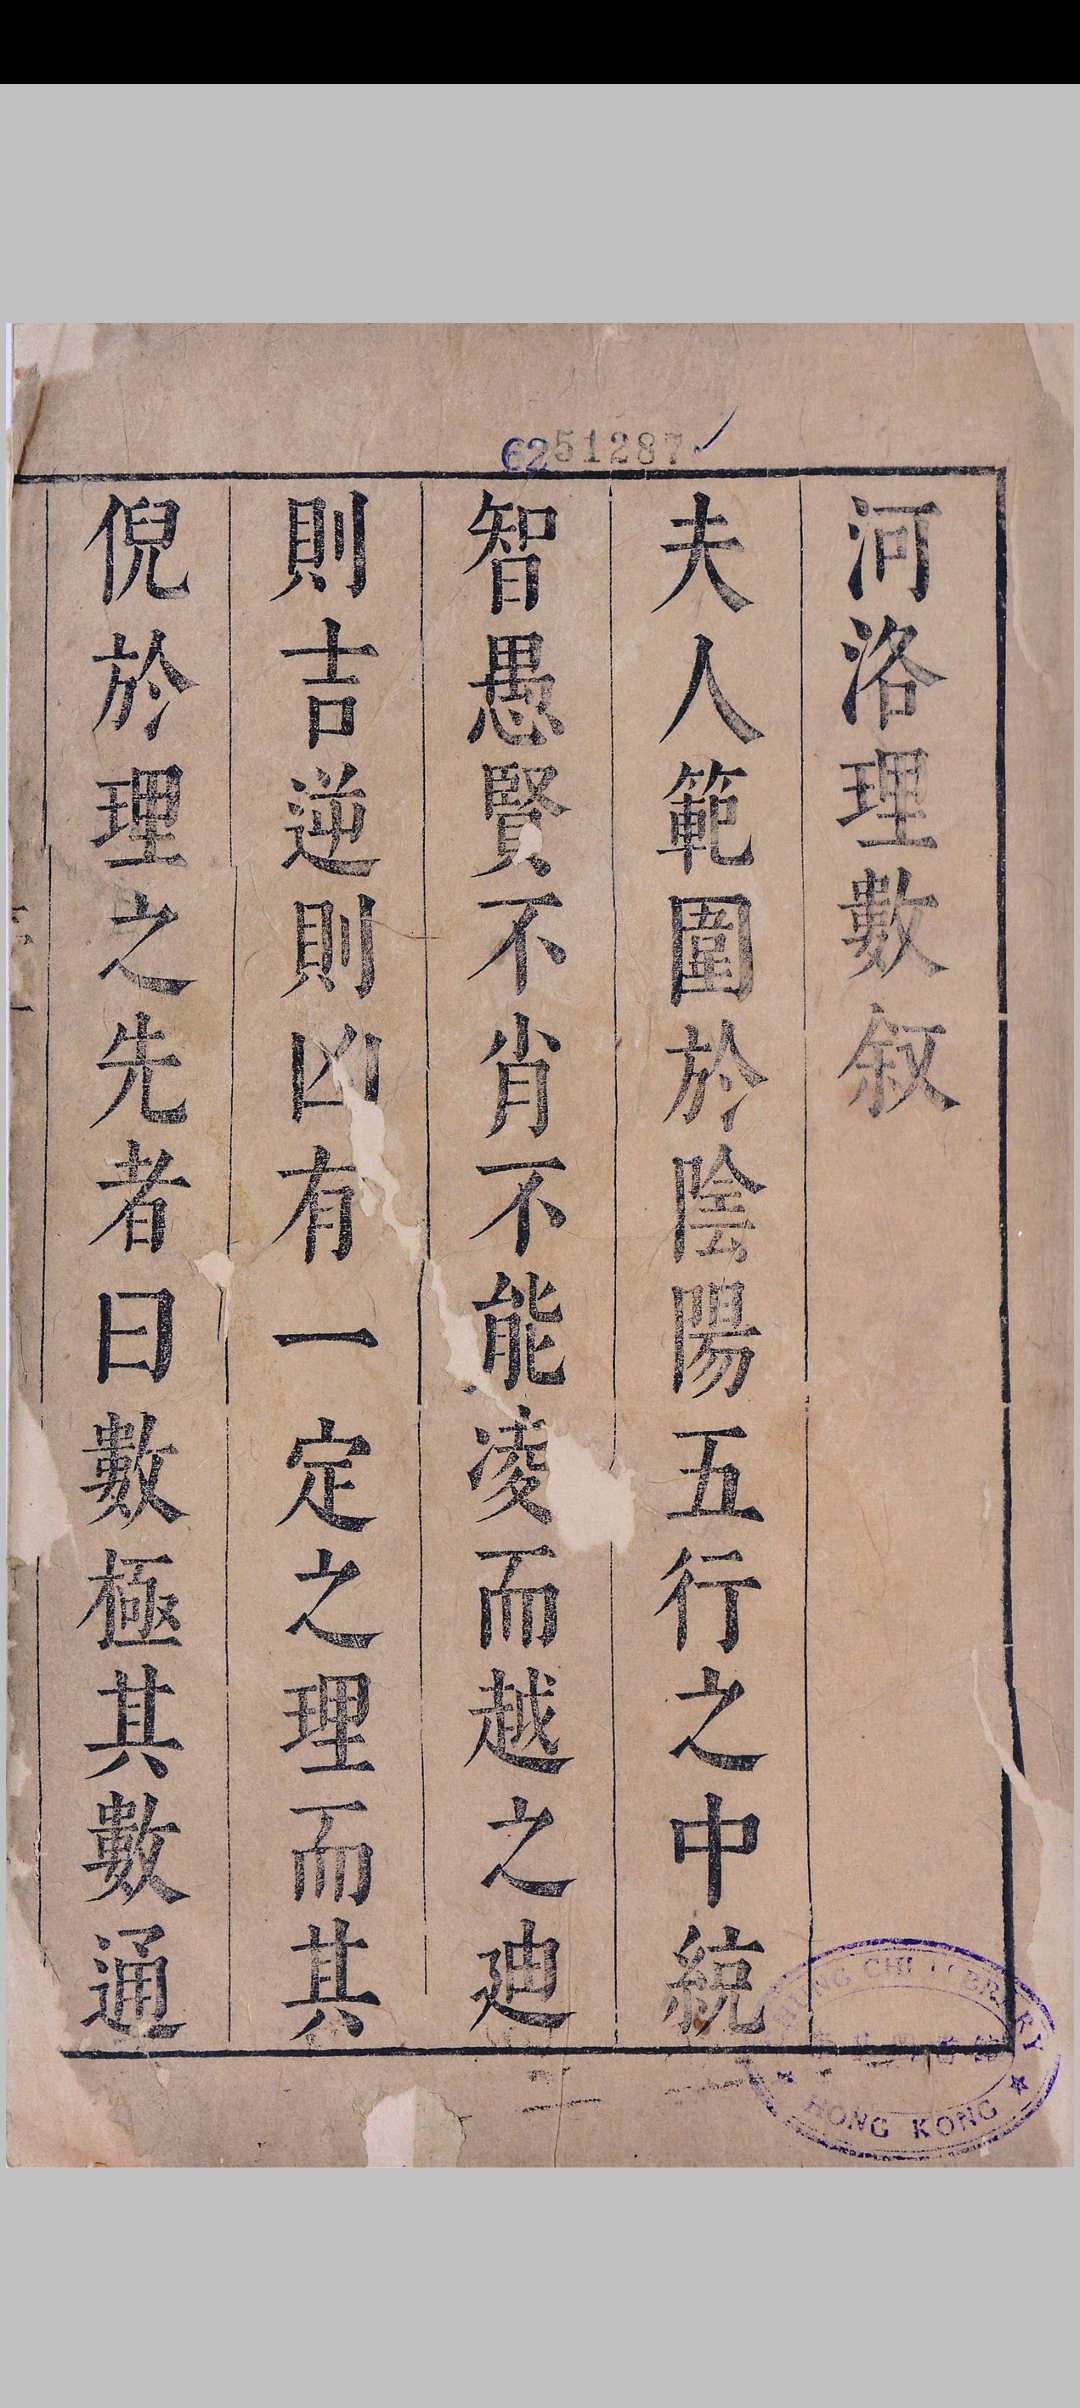 6251287
河洛理數叙
夫人範圍於陰陽五行之中統
智愚賢不肖不能凌而越之廸
則吉逆則凶有一定之理而其
倪於理之先者曰數極其數通
LIBRARY
HONG KONG